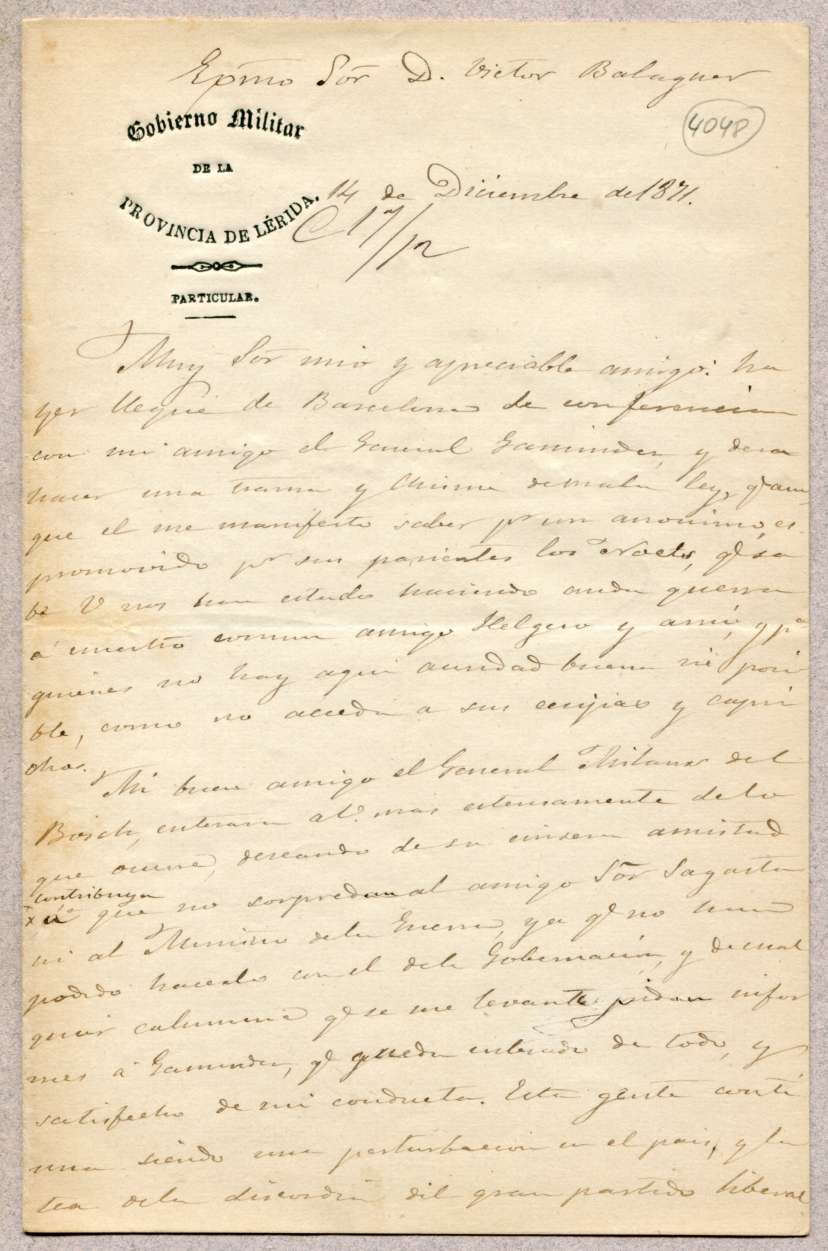 Exmo Sor D. Victor Balaguer
4048
Gobierno Militar
DE LA
PROVINCIA DE LÉRIDA.
PARTICULAR.
14 de Diciembre de 1871.
C 17/12
Muy Sor mio y apreciable amigo: ha
yer llegué de Barcelona de conferenciar
con mi amigo el General Gaminde, y
hacer una trama y de mala ley, qe aun
que el me manifesto saber pr un anonimo, es
promovido pr sus parientes los qe sa
be V nos han estado haciendo cruda guerra
á nuestro comun amigo y á mi, y pa
quienes no hay aqui autoridad buena ni posi
ble, como no acceda a sus exijias y capri
chos.
Mi buen amigo el General Milans del
Bosch, enterara a V. mas estensamente de lo
que ocurre, deseando de su sincera amistad
contribuya
x á que no sorprendan al amigo Sor Sagasta
ni al Ministro de la Guerra, ya qe no han
podido hacerlo con el de la Gobernación, y de cual
quier calumnia qe se me levante, pidan infor
mes á Gaminde, qe queda enterado de todo, y
satisfecho de mi conducta. Esta gente conti
nua siendo una perturbacion en el pais, y la
tea de la discordia del gran partido liberal